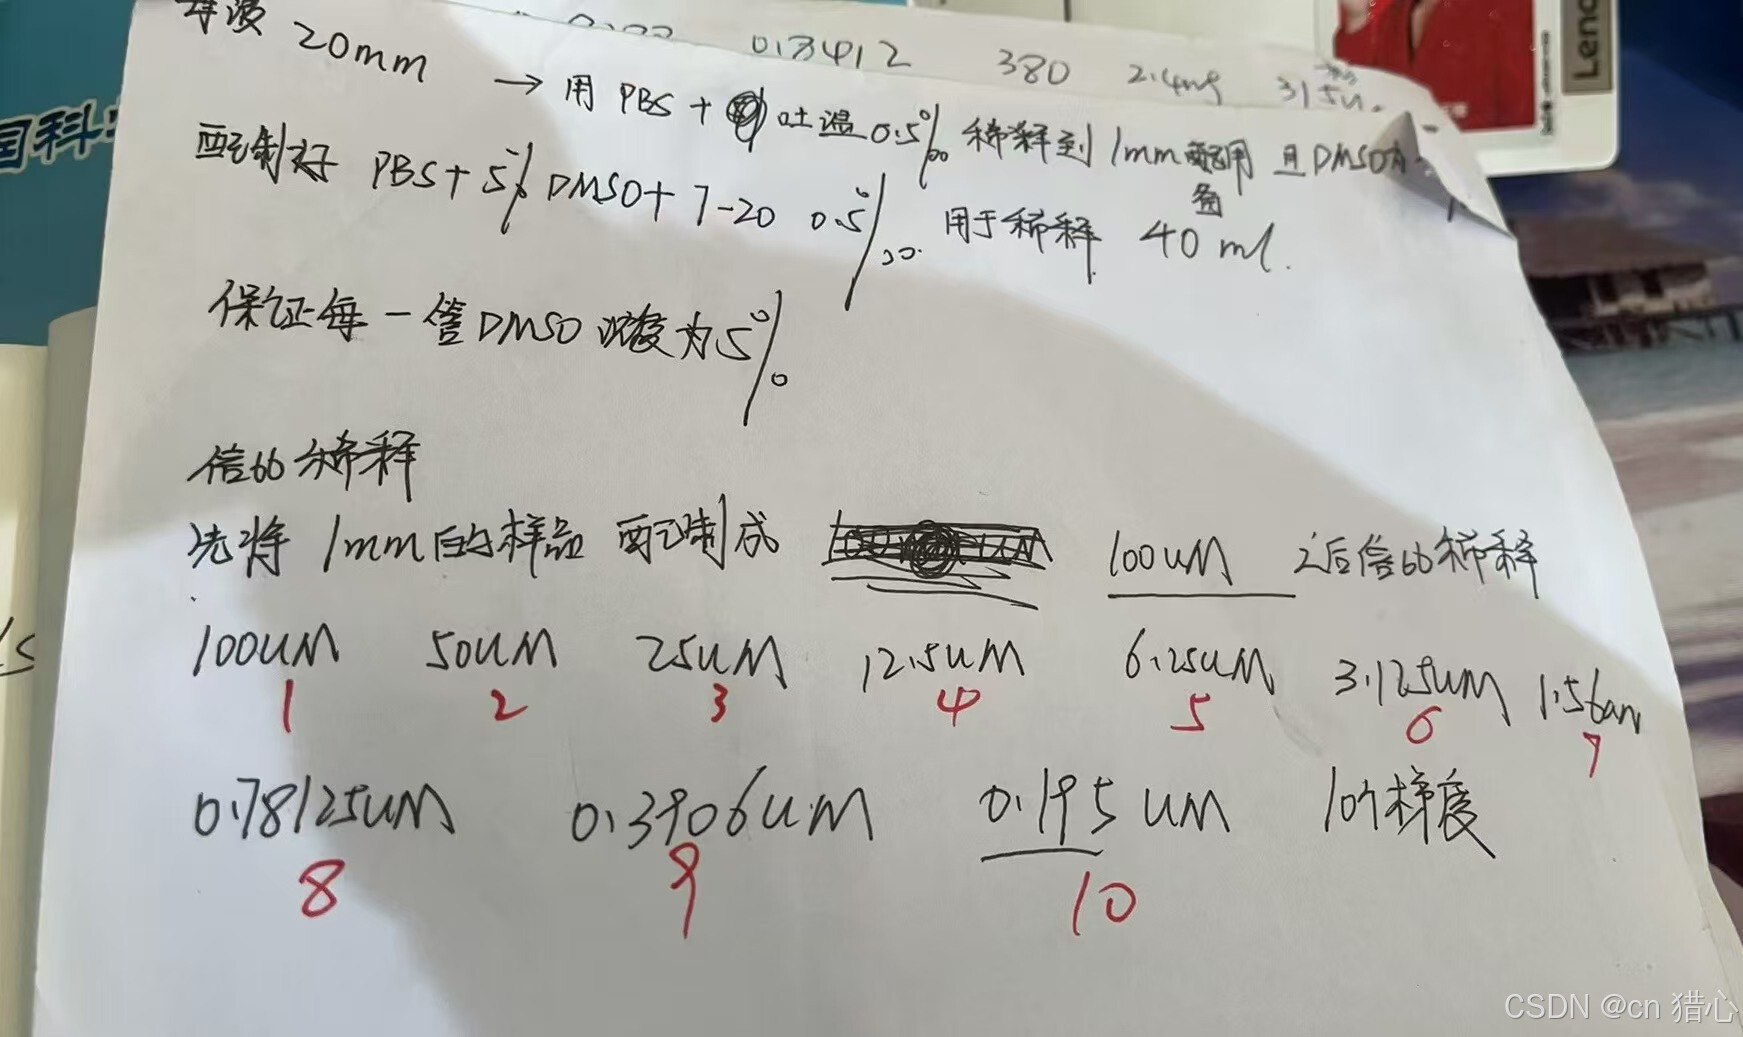 0.3412 380 2.4mg
母液 20mm → 用 PBS + 吐温 0.5‰ 稀释到 1mm 备用 且 DMSO为
配制好 PBS + 5% DMSO + T-20 0.5‰ 用于稀释 40 ml.
保证每一管 DMSO 浓度为 5%
倍比稀释
先将 1mm 的样品 配制成 100uM 之后倍比稀释
100uM 50uM 25uM 12.5uM 6.25uM 3.125uM 1.56um
1 2 3 4 5 6 7
0.78125uM 0.3906uM 0.195 uM 10个梯度
8 9 10
国科
Leno
CSDN @cn 猎心